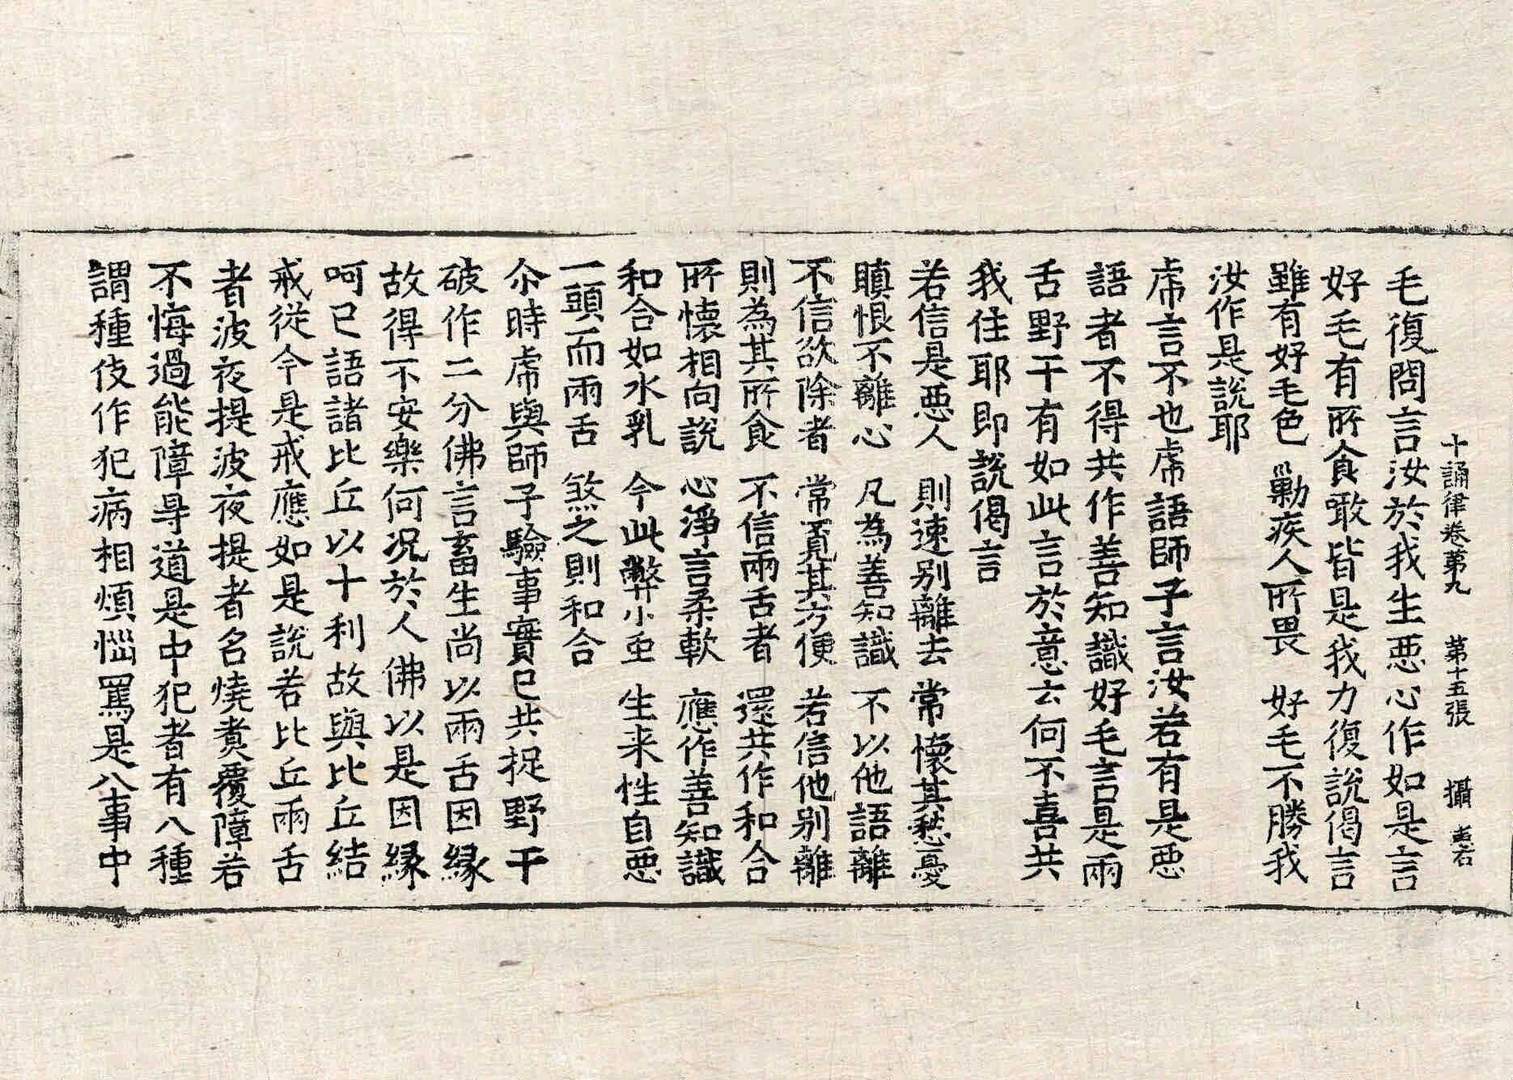 十誦律卷第九 第十五張 攝
毛復問言汝於我生惡心作如是言
好毛有所食敢皆是我力復說偈言
雖有好毛色 勦疾人所畏 好毛不勝我
汝作是說耶
虎言不也虎語師子言汝若有是惡
語者不得共作善知識好毛言是兩
舌野干有如此言於意云何不喜共
我住耶即說偈言
若信是惡人 則速別離去 常懷其愁憂
瞋恨不離心 凡為善知識 不以他語離
不信欲除者 常覓其方便 若信他別離
則為其所食 不信兩舌者 還共作和合
所懷相向說 心淨言柔軟 應作善知識
和合如水乳 今此弊小虫 生来性自惡
一頭而兩舌 煞之則和合
尒時虎與師子驗事實已共捉野干
破作二分佛言畜生尚以兩舌因緣
故得不安樂何況於人佛以是因緣
呵已語諸比丘以十利故與比丘結
戒從今是戒應如是說若比丘兩舌
者波夜提波夜提者名燒煑覆障若
不悔過能障㝵道是中犯者有八種
謂種伎作犯病相煩惱罵是八事中